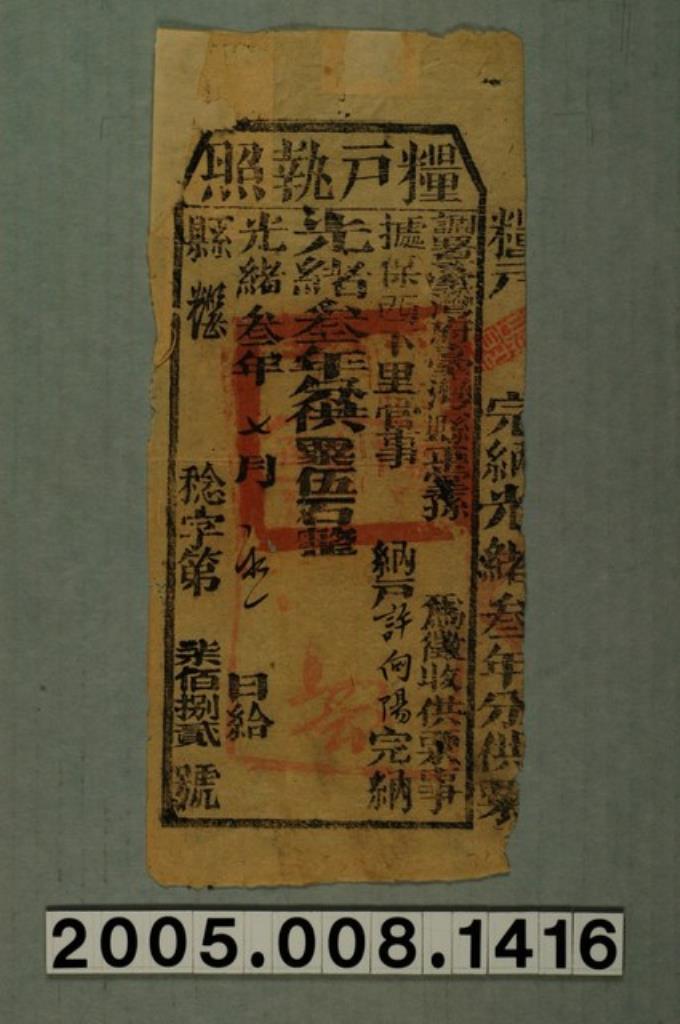 糧戶執照
調署臺灣府臺灣縣正堂孫 為徵收供粟事
據保西下里管事 納戶許向陽完納
光緒叁年分供粟伍石整
光緒叁年七月 日給
縣 糧 稔字第 柒佰捌貳 號
糧戶 完納光緒叁年分供粟
2005.008.1416